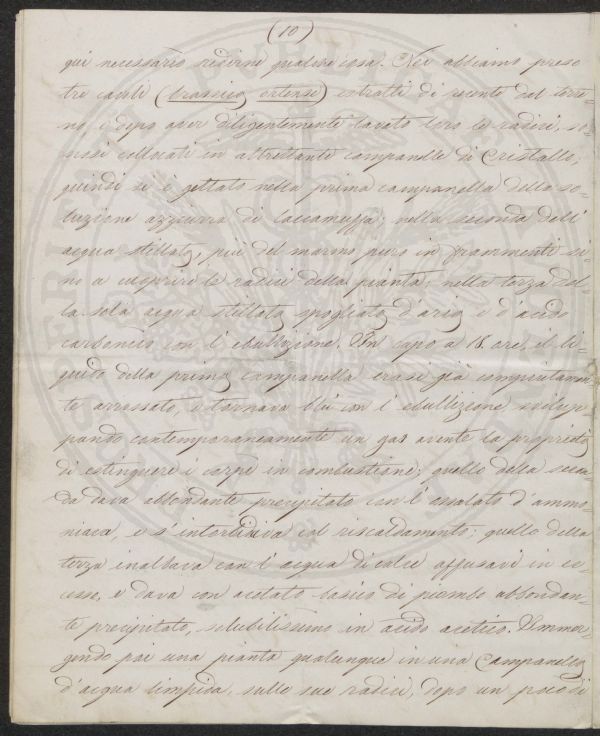 (10)
qui necessario riferirne qualcuna essa. Noi abbiamo preso
tre cavoli (brassica ortense) estratti di recente dal terre-
no, e dopo aver diligentemente lavato loro le radici, so-
nosi collocati in altrettante campanelle di Cristallo;
quindi si è gettato nella prima campanella della so-
luzione azzurra di laccamuffa; nella seconda dell'
acqua stillata, più del marmo puro in frammenti si-
no a coprire le radici della pianta; nella terza del-
la sola acqua stillata spogliata d'aria e d'acido
carbonico con l'ebullizione. In capo a 18 ore il li-
quido della prima campanella erasi già compiutamen-
te arrossato, e tornava blu con l'ebullizione svilup-
pando contemporaneamente un gas avente la proprietà
di estinguere i corpi in combustione; quello della secon-
da dava abbondante precipitato con l'ossalato d'ammo-
niaca, e s'intorbidava col riscaldamento; quello della
terza inalbava con l'acqua di calce affusavi in ec-
cesso, e dava con acetato basico di piombo abbondan-
te precipitato, solubilissimo in acido acetico. Immer-
gendo poi una pianta qualunque in una Campanella
d'acqua limpida, sulle sue radici, dopo un poco di